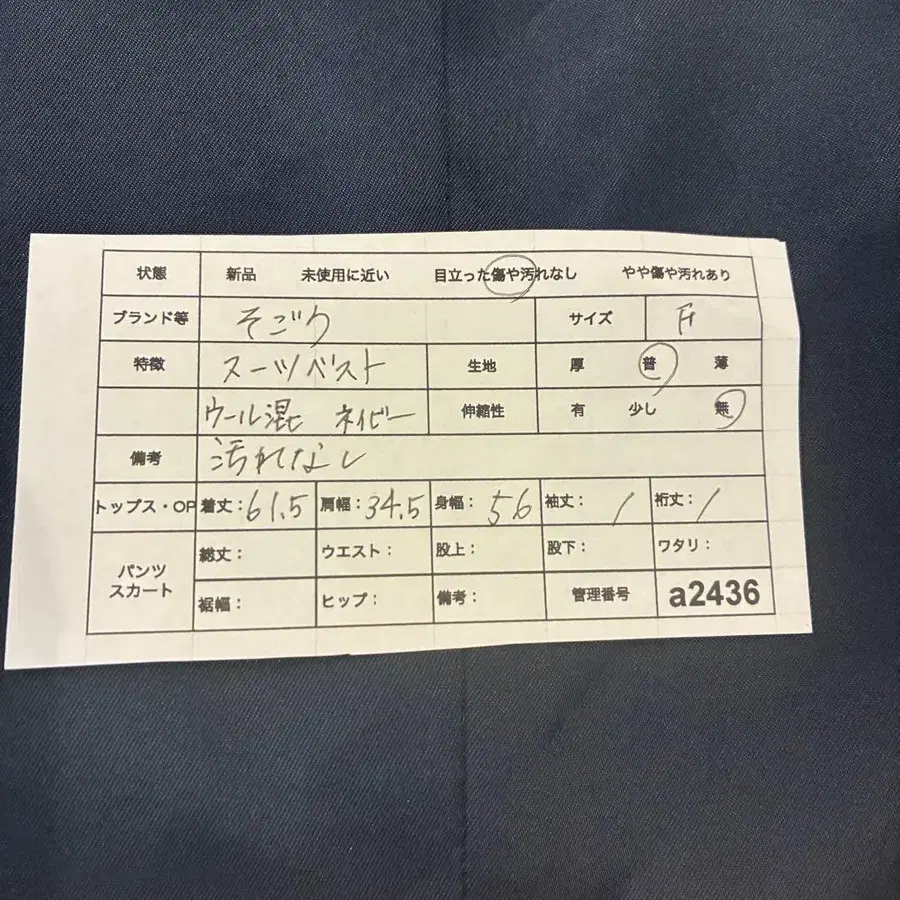 状態 新品 未使用に近い 目立った傷や汚れなし やや傷や汚れあり
ブランド等 そごう サイズ F
特徴 スーツベスト 生地 厚 普 薄
ウール混 ネイビー 伸縮性 有 少し 無
備考 汚れなし
トップス・OP 着丈：61.5 肩幅：34.5 身幅：56 袖丈：/ 裄丈：/
パンツ スカート 総丈： ウエスト： 股上： 股下： ワタリ：
裾幅： ヒップ： 備考： 管理番号 a2436